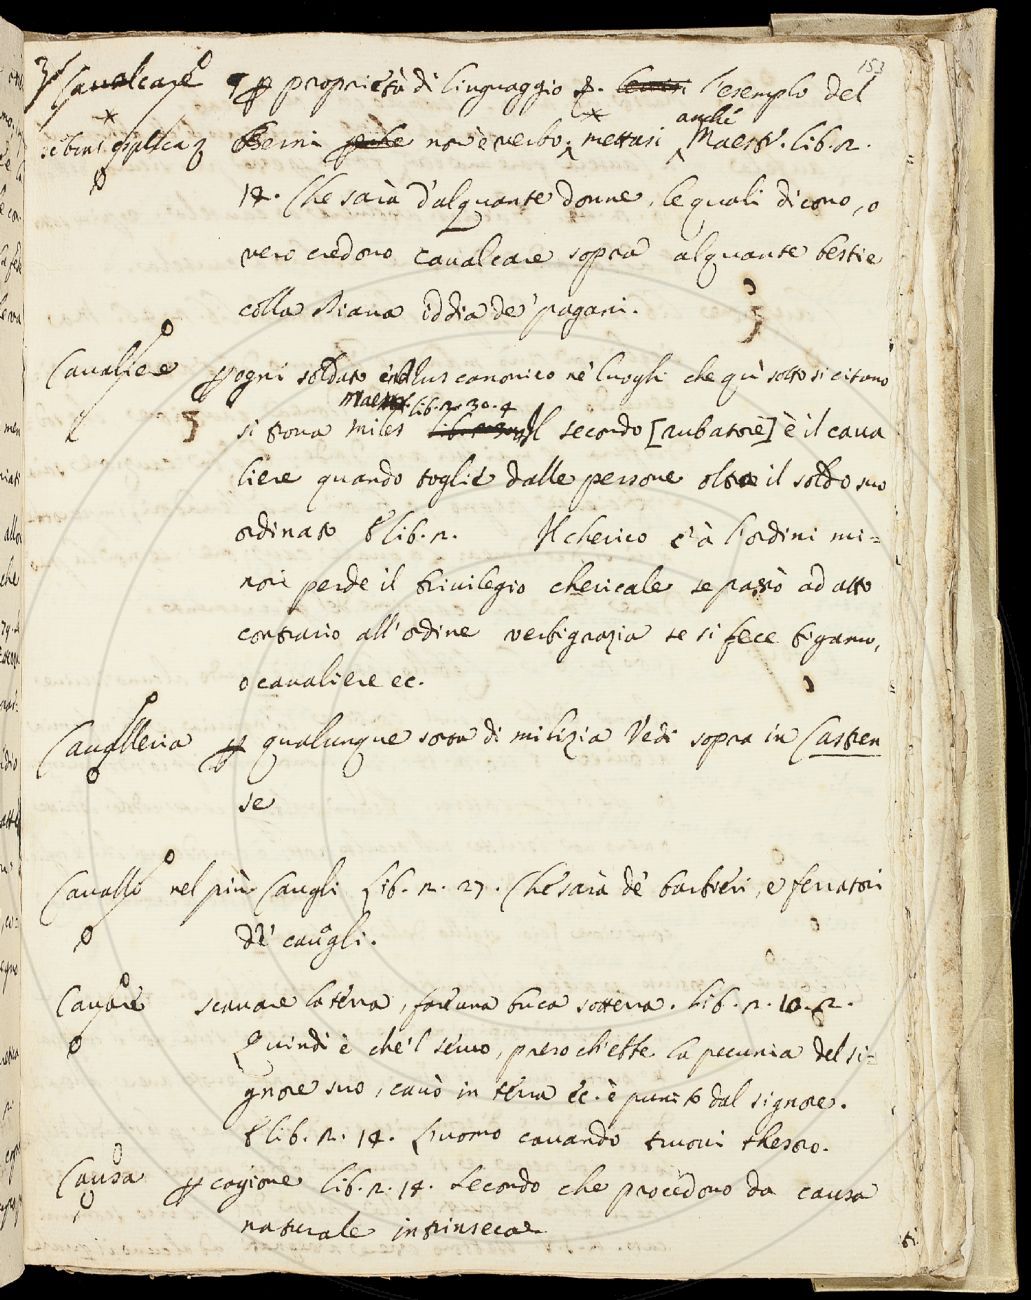 153
Cavalcare p proprietà di linguaggio l'esemplo del
Berni non è verbo, mettasi anche Maestr. lib. 2.
14. Che sarà d'alquante donne, le quali dicono, o
vero credono cavalcare sopra alquante bestie
colla Diana Iddia de' pagani.
Cavaliere p ogni soldato nel Jus canonico ne' luoghi che quì sotto si citano
Maestr. lib. 2. 30. 4
si trova miles Il secondo [rubatore] è il cava
liere quando toglie dalle persone oltre il soldo suo
ordinato E lib. 2. Il cherico c'à l'ordini mi=
nori perde il privilegio chericale se passò ad atto
contrario all'ordine verbigrazia se si fece bigamo,
o cavaliere ec.
Cavalleria p qualunque sorta di milizia Vedi sopra in Castren
se
Cavallo nel più Cavagli Lib. 2. 27. Che sarà de' barbieri, e ferratori
de' cavagli.
Cavare scavare la terra, fare una buca sotterra. Lib. 2. 10. 2.
Quindi è che 'l servo, preso ch'ebbe la pecunia del si=
gnore suo, cavò in terra ec. è punito dal signore.
E lib. 2. 14. L'uomo cavando truovi thesoro.
Causa p cagione Lib. 2. 14. Secondo che procedono da causa
naturale intrinseca